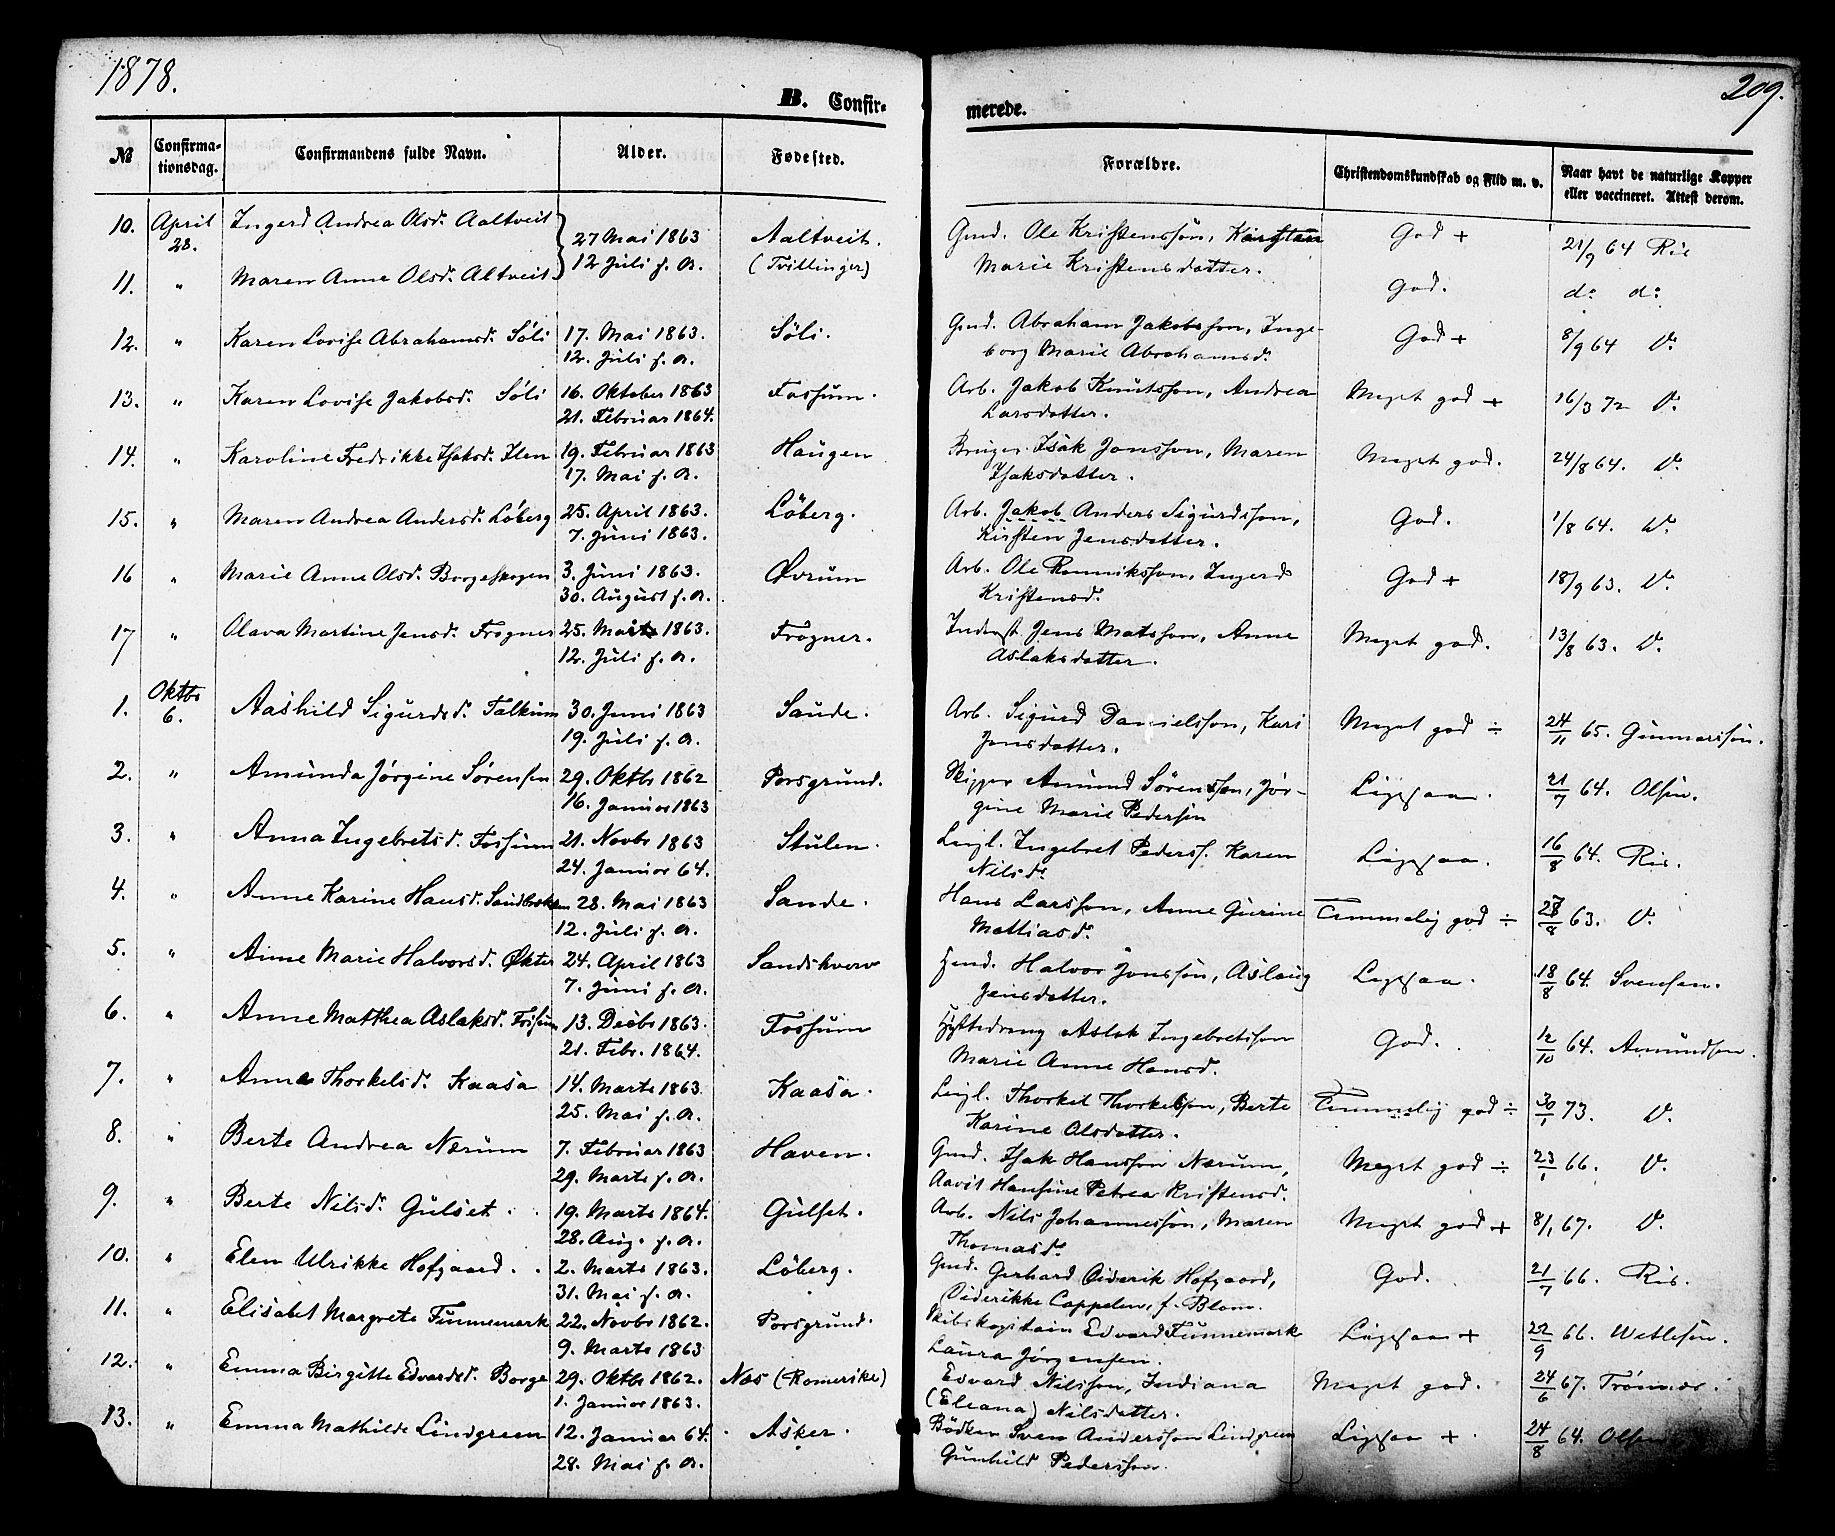 1878.
209.
B. Confir-
merede.
№
Confirma-
tionsdag.
Confirmandens fulde Navn.
Alder.
Fødested.
Forældre.
Christendomskundskab og Flid m. v.
Naar havt de naturlige Kopper
eller vaccineret. Attest derom.
10. April 28. Ingerd Andrea Olsd. Aaltveit 27 Mai 1863 Aaltveit. Gmd. Ole Kristenssøn, God + 21/9 64 Ris
12 Juli s. A. (Tvillinger) Marie Kristensdatter.
11. " Maren Anne Olsd. Altveit God. do do
12. " Karen Lovise Abrahamsd. Søli 17. Mai 1863. Søli. Gmd. Abraham Jakobssøn, Inge- God + 8/9 64 D.
12. Juli s. A. borg Marie Abrahamsd.
13. " Karen Lovise Jakobsd. Søli 16. Oktober 1863 Fossum. Arb. Jakob Knutssøn, Andrea Meget god + 16/3 72 D.
21. Februar 1864. Larsdatter.
14. " Karoline Fredrikke Isaksd. Ilen 19. Februar 1863 Haugen Bruger Isak Jonssøn, Maren Meget god. 24/8 64. D.
17. Mai s. A. Isaksdatter.
15. " Maren Andrea Andersd. Løberg 25. April 1863. Løberg. Arb. Jakob Anders Sigurdssøn, God. 1/8 64. D.
7. Juni 1863. Kirsten Jensdatter.
16 " Marie Anne Olsd. Borgeskogen 3. Juni 1863. Øvrum Arb. Ole Rønnikssøn, Ingerd God + 18/9 63. D.
30. August s. A. Kristensd.
17 " Olava Martine Jensd. Frogner 25. Marts 1863. Frogner. Inderst Jens Matssøn, Anne Meget god. 13/8 63. D.
12. Juli s. A. Aslaksdatter.
1. Oktbr 6. Aashild Sigurdsd. Falkum 30. Juni 1863 Sande. Arb. Sigurd Danielssøn, Kari Meget god ÷ 24/11 65. Gunnarssøn.
19. Juli s. A. Jonsdatter.
2. " Amunda Jørgine Sørensen 29. Oktbr 1862 Porsgrund. Skipper Amund Sørenssøn, Jør- Ligesaa. 21/7 64. Olsen.
16. Januar 1863 gine Marie Pedersen
3. " Anna Ingebretsd. Fossum 21. Novbr 1863 Stulen. Leigl. Ingebret Peders. Karen Ligesaa. 16/8 64. Ris.
24. Januar 64. Nilsd.
4. " Anne Karine Hansd. 28. Mai 1863 Sande. Hans Larssøn, Anne Gurine Temmelig god ÷ 63. D.
12. Juli s. A. Mattiasd.
5. " Anne Marie Halvorsd. Økter 24. April 1863 Sandsværv Gmd. Halvor Jonssøn, Aslaug Ligesaa. 18/8 64. Svensen.
7. Juni s. A. Jensdatter.
6. " Anne Matthea Aslaksd. Fossum 13. Decbr 1863. Fossum Aslak Ingebretssøn God. 12/10 64. Amundsen.
21. Febr. 1864. Marie Anne Hansd.
7. " Anne Thorkelsd. Kaasa 14. Marts 1863. Kaasa. Leigl. Thorkel Thorkelssøn, Berte Temmelig god ÷ 30/1 73. D.
25. Mai s. A. Karine Olsdatter.
8. " Berte Andrea Nærum 7. Februar 1863 Haven. Gmd. Isak Hanssøn Nærum, Meget god ÷ 23/1 66. D.
29. Marts s. A. Hansine Petrea Kristensd.
9. " Berte Nilsd. Gulset. 19. Marts 1864. Gulset. Arb. Nils Johannessøn, Maren Meget god + 8/1 67. D.
28. Aug. s. A. Thomasd.
10. " Elen Ulrikke Hofgaard. 2. Marts 1863. Løberg. Gmd. Gerhard Diderik Hofgaard, God. 21/7 66. Ris.
31. Mai s. A. Diderikke Cappelen, f. Blom.
11. " Elisabet Margrete Funnemark 22. Novbr 1862. Porsgrund. Skibskapitain Edvard Funnemark Ligesaa + 22/9 66. Wetlesen.
9. Marts 1863 Laura Jørgensen.
12. " Emma Birgitte Edvardsd. Borge 29. Oktbr 1862. Næs (Romerike) Edvard Nilssøn, Indiana Meget god. 24/6 67.
1. Januar 1863. (Eleana) Nilsdatter.
13. " Emma Mathilde Lindgreen 12. Januar 64. Asker. Bødker Sven Anderssøn Lindgreen Ligesaa + 24/8 64. Olsen
28. Mai s. A. Gunhild Pederssøn.